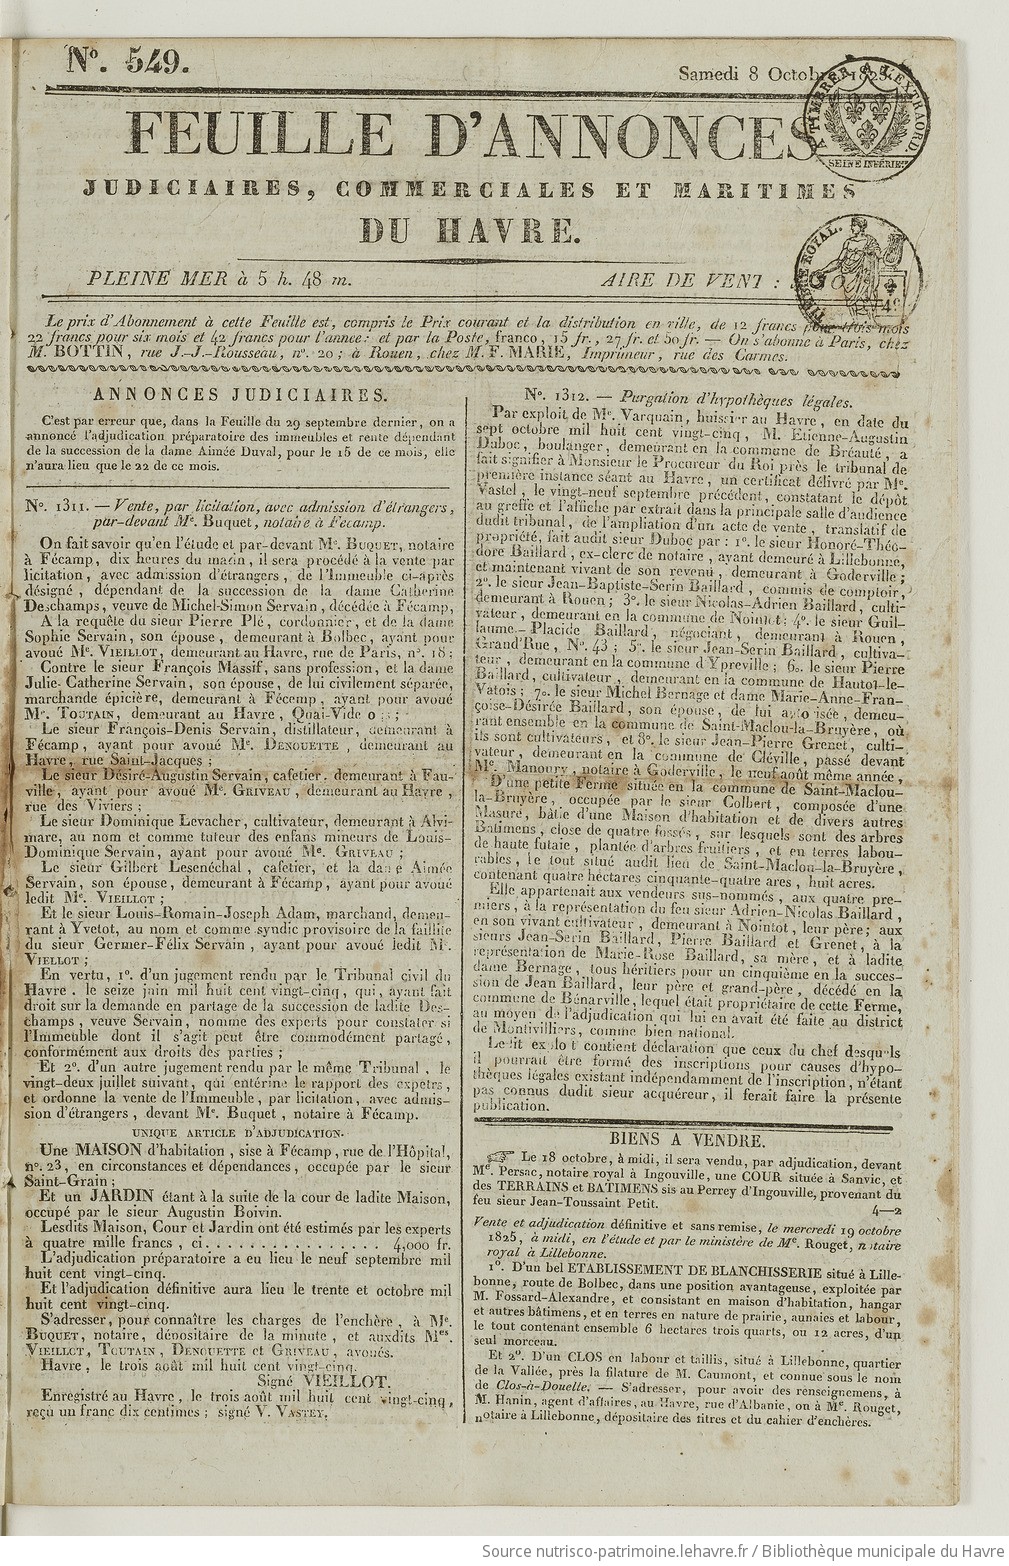 N°. 549.
Samedi 8 Octobre 1825.
A TIMBRER A L'EXTRAORD.
SEINE INFÉRIEre
FEUILLE D'ANNONCES
JUDICIAIRES, COMMERCIALES ET MARITIMES
DU HAVRE.
PLEINE MER à 5 h. 48 m.
AIRE DE VENT :
TIMBRE ROYAL.
4c
Le prix d'Abonnement à cette Feuille est, compris le Prix courant et la distribution en ville, de 12 francs pour trois mois
22 francs pour six mois et 42 francs pour l'année : et par la Poste, franco, 15 fr., 27 fr. et 50 fr. — On s'abonne à Paris, chez
M. BOTTIN, rue J.-J.-Rousseau, n°. 20 ; à Rouen, chez M. F. MARIE, Imprimeur, rue des Carmes.
ANNONCES JUDICIAIRES.
C'est par erreur que, dans la Feuille du 29 septembre dernier, on a
annoncé l'adjudication préparatoire des immeubles et rente dépendant
de la succession de la dame Aimée Duval, pour le 15 de ce mois, elle
n'aura lieu que le 22 de ce mois.
N°. 1311. — Vente, par licitation, avec admission d'étrangers,
par-devant Me. Buquet, notaire à Fécamp.
On fait savoir qu'en l'étude et par-devant Me. BUQUET, notaire
à Fécamp, dix heures du matin, il sera procédé à la vente par
licitation, avec admission d'étrangers, de l'Immeuble ci-après
désigné, dépendant de la succession de la dame Catherine
Deschamps, veuve de Michel-Simon Servain, décédée à Fécamp,
A la requête du sieur Pierre Plé, cordonnier, et de la dame
Sophie Servain, son épouse, demeurant à Bolbec, ayant pour
avoué Me. VIEILLOT, demeurant au Havre, rue de Paris, n°. 18 ;
Contre le sieur François Massif, sans profession, et la dame
Julie-Catherine Servain, son épouse, de lui civilement séparée,
marchande épicière, demeurant à Fécamp, ayant pour avoué
Me. TOUTAIN, demeurant au Havre, Quai-Vide
Le sieur François-Denis Servain, distillateur, demeurant à
Fécamp, ayant pour avoué Me. DENOUETTE, demeurant au
Havre, rue Saint-Jacques ;
Le sieur Désiré-Augustin Servain, cafetier, demeurant à Fau-
ville, ayant pour avoué Me. GRIVEAU, demeurant au Havre,
rue des Viviers ;
Le sieur Dominique Levacher, cultivateur, demeurant à Alvi-
mare, au nom et comme tuteur des enfans mineurs de Louis-
Dominique Servain, ayant pour avoué Me. GRIVEAU ;
Le sieur Gilbert Lesenéchal, cafetier, et la dame Aimée
Servain, son épouse, demeurant à Fécamp, ayant pour avoué
ledit Me. VIEILLOT ;
Et le sieur Louis-Romain-Joseph Adam, marchand, demeu-
rant à Yvetot, au nom et comme syndic provisoire de la faillite
du sieur Germer-Félix Servain, ayant pour avoué ledit Me.
VIELLOT ;
En vertu, 1°. d'un jugement rendu par le Tribunal civil du
Havre, le seize juin mil huit cent vingt-cinq, qui, ayant fait
droit sur la demande en partage de la succession de ladite Des-
champs, veuve Servain, nomme des experts pour constater si
l'Immeuble dont il s'agit peut être commodément partagé,
conformément aux droits des parties ;
Et 2°. d'un autre jugement rendu par le même Tribunal, le
vingt-deux juillet suivant, qui entérine le rapport des expetrs,
et ordonne la vente de l'Immeuble, par licitation, avec admis-
sion d'étrangers, devant Me. Buquet, notaire à Fécamp.
UNIQUE ARTICLE D'ADJUDICATION.
Une MAISON d'habitation, sise à Fécamp, rue de l'Hôpital,
n°. 23, en circonstances et dépendances, occupée par le sieur
Saint-Grain ;
Et un JARDIN étant à la suite de la cour de ladite Maison,
occupé par le sieur Augustin Boivin.
Lesdits Maison, Cour et Jardin ont été estimés par les experts
à quatre mille francs, ci. . . . . . . . . . . . . . . . 4,000 fr.
L'adjudication préparatoire a eu lieu le neuf septembre mil
huit cent vingt-cinq.
Et l'adjudication définitive aura lieu le trente et octobre mil
huit cent vingt-cinq.
S'adresser, pour connaître les charges de l'enchère, à Me.
BUQUET, notaire, dépositaire de la minute, et auxdits Mes.
VIEILLOT, TOUTAIN, DENOUETTE et GRIVEAU, avoués.
Havre, le trois août mil huit cent vingt-cinq.
Signé VIEILLOT.
Enregistré au Havre, le trois août mil huit cent vingt-cinq,
reçu un franc dix centimes ; signé V. VASTEY.
N°. 1312. — Purgation d'hypothèques légales.
Par exploit de Me. Varquain, huissier au Havre, en date du
sept octobre mil huit cent vingt-cinq, M. Etienne-Augustin
Duboc, boulanger, demeurant en la commune de Bréauté, a
fait signifier à Monsieur le Procureur du Roi près le tribunal de
première instance séant au Havre, un certificat délivré par Me.
Vastel, le vingt-neuf septembre précédent, constatant le dépôt
au greffe et l'affiche par extrait dans la principale salle d'audience
dudit tribunal, de l'ampliation d'un acte de vente, translatif de
propriété, fait audit sieur Duboc par : 1°. le sieur Honoré-Théo-
dore Baillard, ex-clerc de notaire, ayant demeuré à Lillebonne,
et maintenant vivant de son revenu, demeurant à Goderville ;
2°. le sieur Jean-Baptiste-Serin Baillard, commis de comptoir,
demeurant à Rouen ; 3°. le sieur Nicolas-Adrien Baillard, culti-
vateur, demeurant en la commune de Nointot ; 4°. le sieur Guil-
laume-Placide Baillard, négociant, demeurant à Rouen,
Grand'Rue, N°. 43 ; 5°. le sieur Jean-Serin Baillard, cultiva-
teur, demeurant en la commune d'Ypreville ; 6o. le sieur Pierre
Baillard, cultivateur, demeurant en la commune de Hautot-le-
Vatois ; 7o. le sieur Michel Bernage et dame Marie-Anne-Fran-
çoise-Désirée Baillard, son épouse, de lui autorisée, demeu-
rant ensemble en la commune de Saint-Maclou-la-Bruyère, où
ils sont cultivateurs, et 8°. le sieur Jean-Pierre Grenet, culti-
vateur, demeurant en la commune de Cléville, passé devant
Me. Manoury, notaire à Goderville, le neuf août même année,
D'une petite Ferme située en la commune de Saint-Maclou-
la-Bruyère, occupée par le sieur Colbert, composée d'une
Masure, bâtie d'une Maison d'habitation et de divers autres
Bâtimens, close de quatre fossés, sur lesquels sont des arbres
de haute futaie, plantée d'arbres fruitiers, et en terres labou-
rables, le tout situé audit lieu de Saint-Maclou-la-Bruyère,
contenant quatre hectares cinquante-quatre ares, huit acres.
Elle appartenait aux vendeurs sus-nommés, aux quatre pre-
miers, à la représentation du feu sieur Adrien-Nicolas Baillard,
en son vivant cultivateur, demeurant à Nointot, leur père ; aux
sieurs Jean-Serin Baillard, Pierre Baillard et Grenet, à la
représentation de Marie-Rose Baillard, sa mère, et à ladite
dame Bernage, tous héritiers pour un cinquième en la succes-
sion de Jean Baillard, leur père et grand-père, décédé en la
commune de Bénarville, lequel était propriétaire de cette Ferme,
au moyen de l'adjudication qui lui en avait été faite au district
de Montivilliers, comme bien national.
Ledit exploit contient déclaration que ceux du chef desquels
il pourrait être formé des inscriptions pour causes d'hypo-
thèques légales existant indépendamment de l'inscription, n'étant
pas connus dudit sieur acquéreur, il ferait faire la présente
publication.
BIENS A VENDRE.
☞ Le 18 octobre, à midi, il sera vendu, par adjudication, devant
Me. Persac, notaire royal à Ingouville, une COUR située à Sanvic, et
des TERRAINS et BATIMENS sis au Perrey d'Ingouville, provenant du
feu sieur Jean-Toussaint Petit.
4—2
Vente et adjudication définitive et sans remise, le mercredi 19 octobre
1825, à midi, en l'étude et par le ministère de Me. Rouget, notaire
royal à Lillebonne.
1°. D'un bel ETABLISSEMENT DE BLANCHISSERIE situé à Lille-
bonne, route de Bolbec, dans une position avantageuse, exploitée par
M. Fossard-Alexandre, et consistant en maison d'habitation, hangar
et autres bâtimens, et en terres en nature de prairie, aunaies et labour,
le tout contenant ensemble 6 hectares trois quarts, ou 12 acres, d'un
seul morceau.
Et 2°. D'un CLOS en labour et taillis, situé à Lillebonne, quartier
de la Vallée, près la filature de M. Caumont, et connue sous le nom
de Clos-à-Douelle. — S'adresser, pour avoir des renseignemens, à
M. Hanin, agent d'affaires, au Havre, rue d'Albanie, on à Me. Rouget,
notaire à Lillebonne, dépositaire des titres et du cahier d'enchères.
Source nutrisco-patrimoine.lehavre.fr / Bibliothèque municipale du Havre